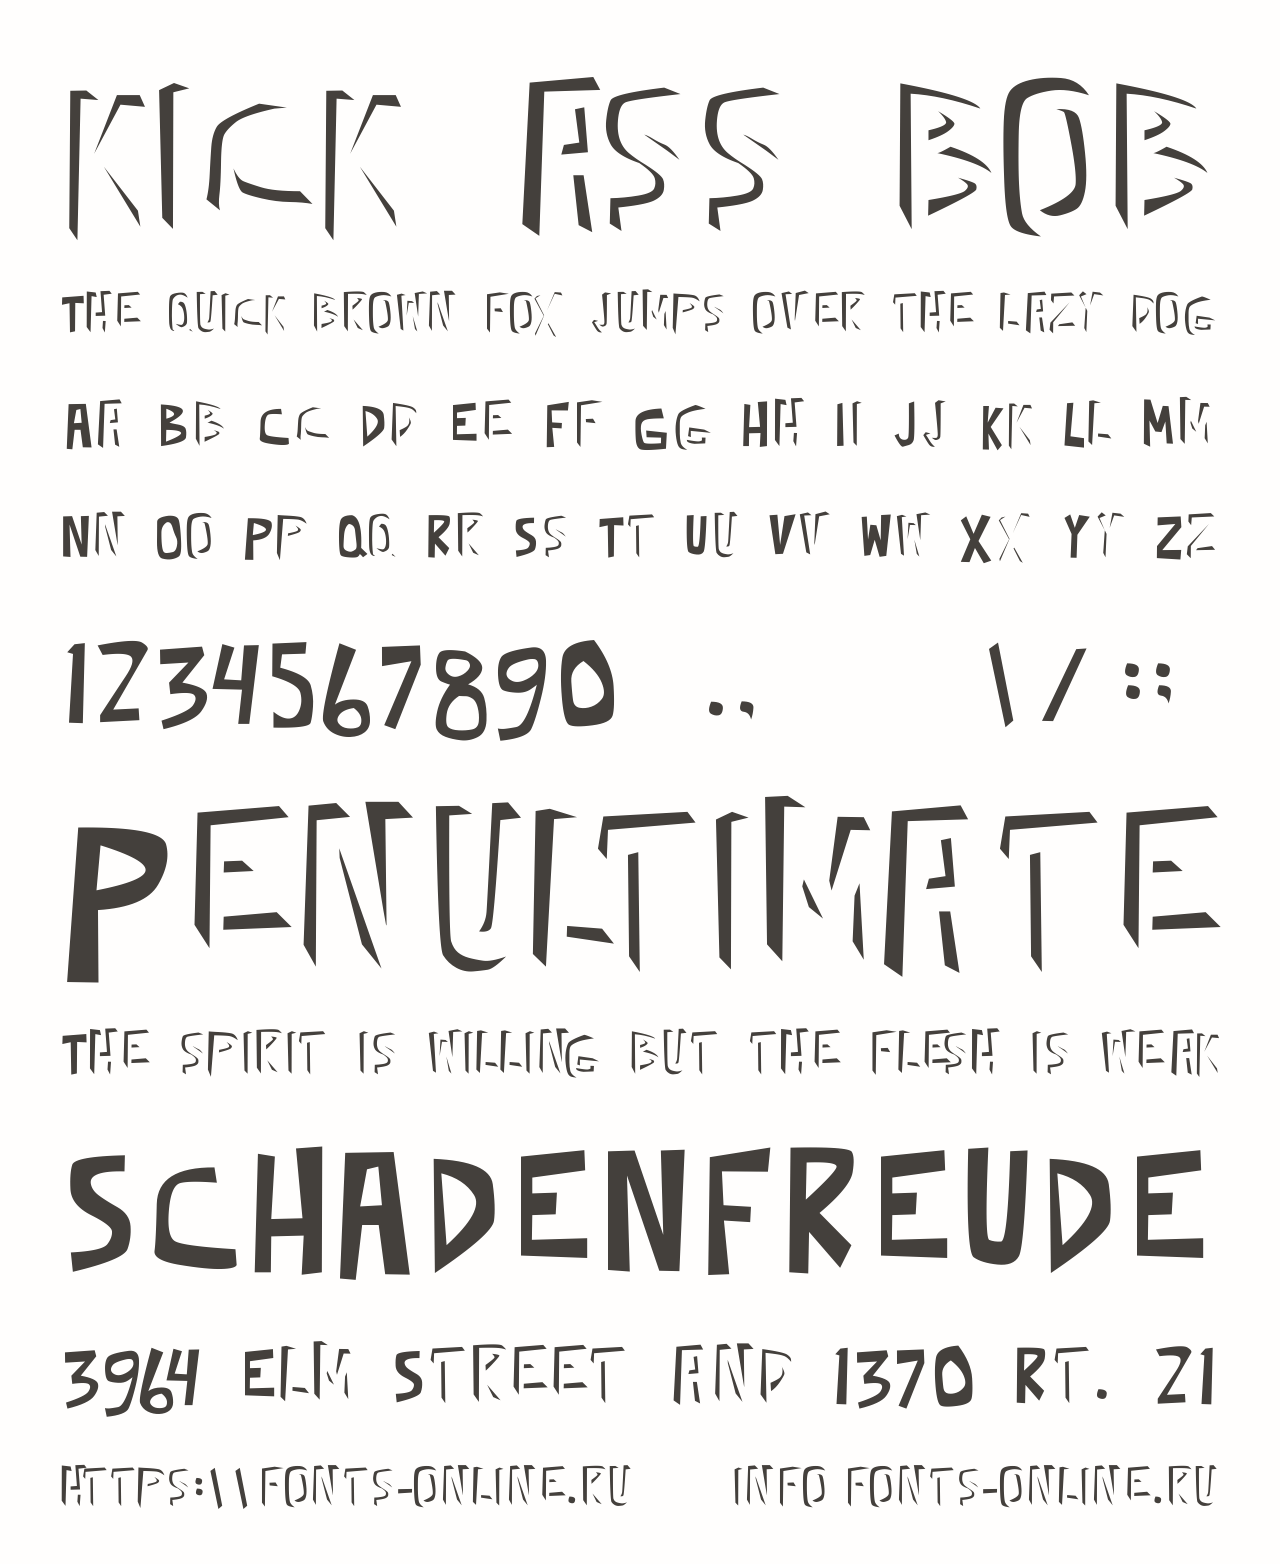 KICK ASS BOB
THE QUICK BROWN FOX JUMPS OVER THE LAZY DOG
AA BB CC DD EE FF GG HH II JJ KK LL MM
NN OO PP QQ RR SS TT UU VV WW XX YY ZZ
1234567890 ., \ / : ;
PENULTIMATE
THE SPIRIT IS WILLING BUT THE FLESH IS WEAK
SCHADENFREUDE
3964 ELM STREET AND 1370 RT. 21
HTTPS:\\FONTS-ONLINE.RU INFO FONTS-ONLINE.RU